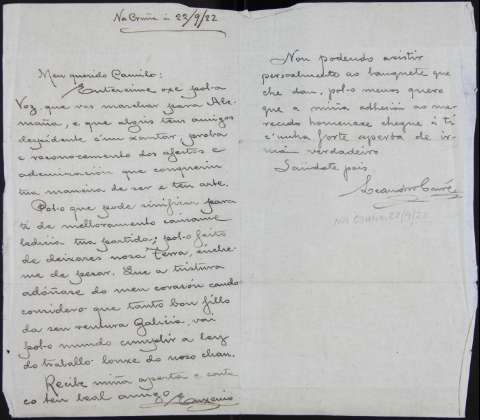 Na Cruña á 22/9/22
Meu querido Camilo:
Entereime oxe pol-a
Voz, que vas marchar para Ale-
maña, e que algús teus amigos
despídente c'un xantar, proba
e reconocemento dos afeitos e
ademiración que conqueriu
tua maneira de ser e teu arte.
Pol-o que pode sinificar para
tí de melloramento
ledícia tua partida; pol-o feito
de deixares nosa Terra, énche-
me de pesar. Que a tristura
adóñase do meu corazón cando
considero que tanto bon fillo
da sen ventura Galicia, vai
pol-o mundo cumprir a ley
do traballo lonxe do noso chan.
Recibe miña aperta e
teu leal amigo
Non podendo asistir
persoalmente ao banquete que
che dan, pol-o menos quero
que a miña adhesión ao me-
recido homenaxe chegue á tí
c'unha forte aperta de ir-
mán verdadeiro
Saúdate pois
Leandro Carré
Na Cruña, 22/9/22